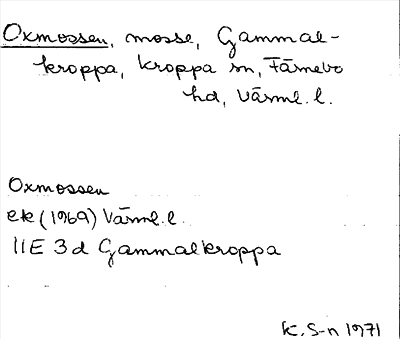 Oxmossen, mosse, Gammal-
kroppa, Kroppa sn, Färnebo
hd, Värml. l.
Oxmossen
ek (1969) Värml. l.
11E 3d Gammalkroppa
K. S-n 1971